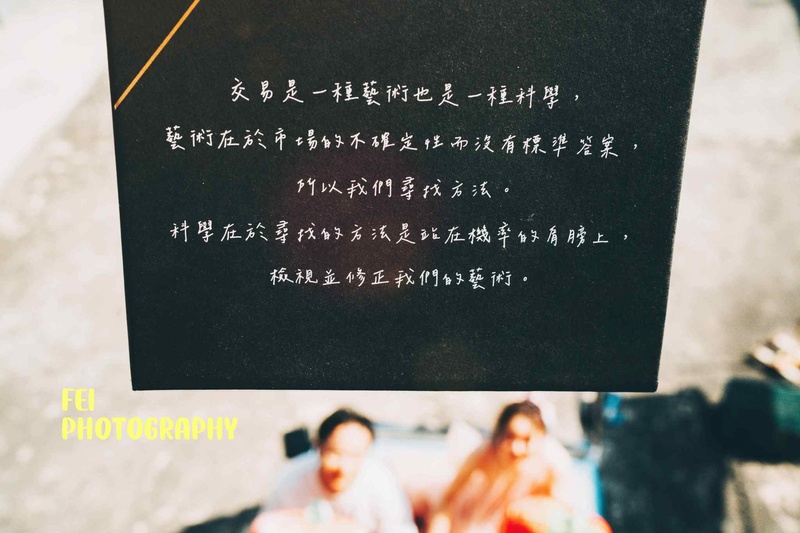 交易是一種藝術也是一種科學，
藝術在於市場的不確定性而沒有標準答案，
所以我們尋找方法。
科學在於尋找的方法是站在機率的肩膀上，
檢視並修正我們的藝術。
FEI
PHOTOGRAPHY